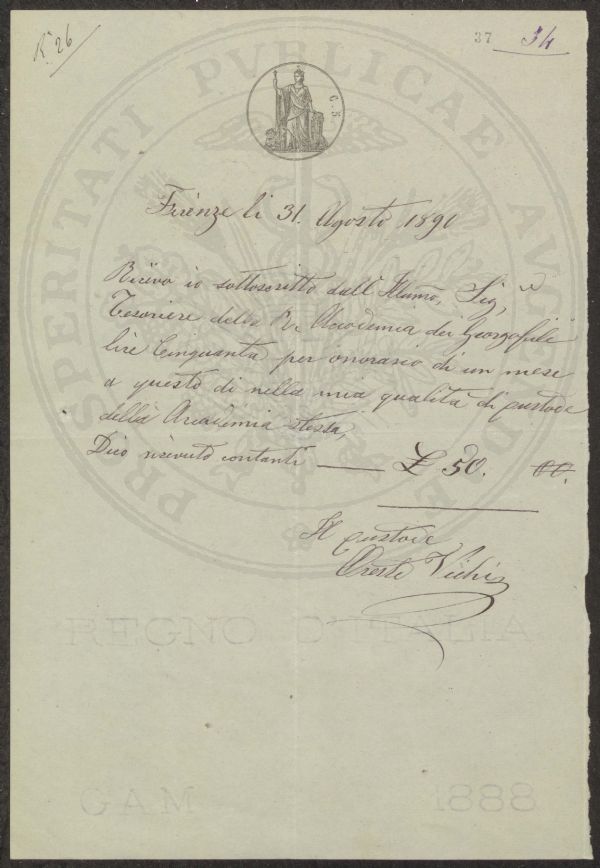 R. 26
37 34
PROSPERITATI PVBLICAE AVGENDAE
C. 5.
Firenze li 31. Agosto 1890
Ricevo io sottoscritto dall' Illmo, Sig,
Tesoriere della R. Accademia dei Georgofili
lire Cinquanta per onorario di un mese
a questo dì nella mia qualità di custode
della Accademia stessa,
Dico ricevuto contanti £ 50. 00.
Il custode
Oreste Vichi
REGNO D'ITALIA
GAM 1888